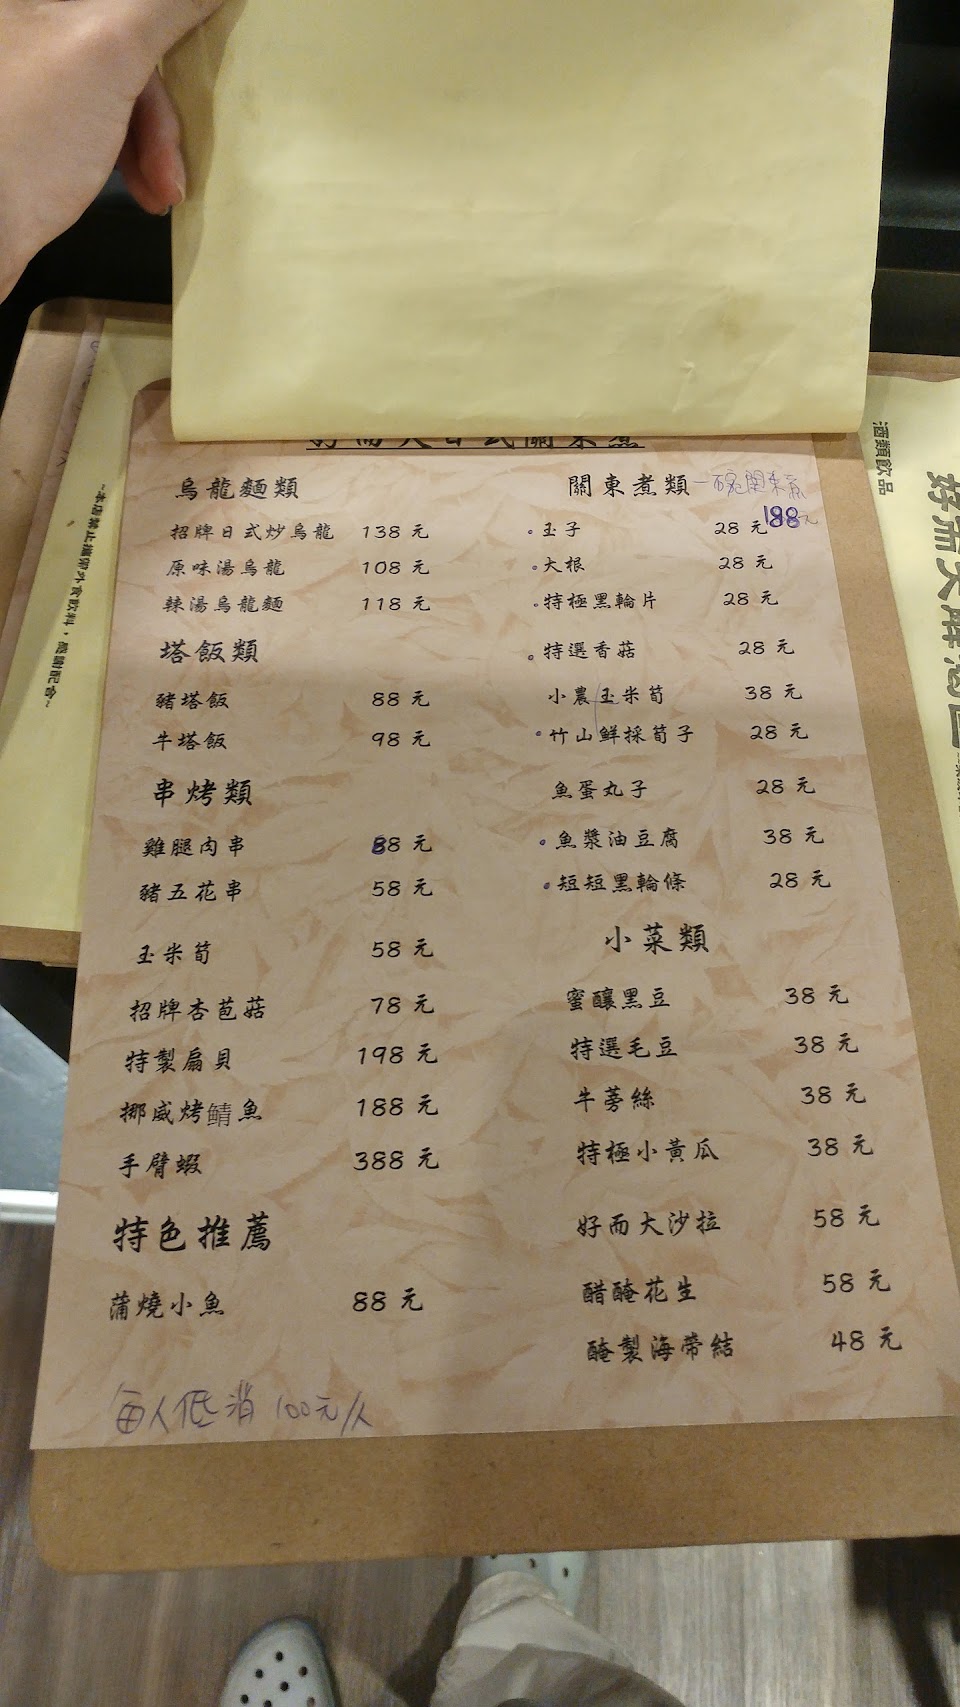 烏龍麵類
招牌日式炒烏龍 138 元
原味湯烏龍 108 元
辣湯烏龍麵 118 元
塔飯類
豬塔飯 88 元
牛塔飯 98 元
串烤類
雞腿肉串 88 元
豬五花串 58 元
玉米筍 58 元
招牌杏苞菇 78 元
特製扇貝 198 元
挪威烤鯖魚 188 元
手臂蝦 388 元
特色推薦
蒲燒小魚 88 元
每人低消 100元/人
關東煮類 一碗關東煮
188元
玉子 28 元
大根 28 元
特極黑輪片 28 元
特選香菇 28 元
小農玉米筍 38 元
竹山鮮採筍子 28 元
魚蛋丸子 28 元
魚漿油豆腐 38 元
短短黑輪條 28 元
小菜類
蜜釀黑豆 38 元
特選毛豆 38 元
牛蒡絲 38 元
特極小黃瓜 38 元
好而大沙拉 58 元
醋醃花生 58 元
醃製海帶結 48 元
~本店禁止攜帶外食飲料,感謝配合~
酒類飲品